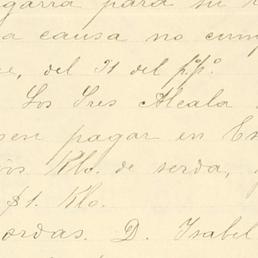 garra para su
a causa no cum
e, del 31 del p.º p.º
Los Tres Alcala
sen pagar en En
ios Klo. de serda,
$1. Klo.
ordas. D. Isabel